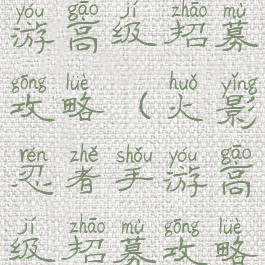 yóu gāo jí zhāo mù
游高级招募
gōng lüè huǒ yǐng
攻略(火影
rěn zhě shǒu yóu gāo
忍者手游高
jí zhāo mù gōng lüè
级招募攻略